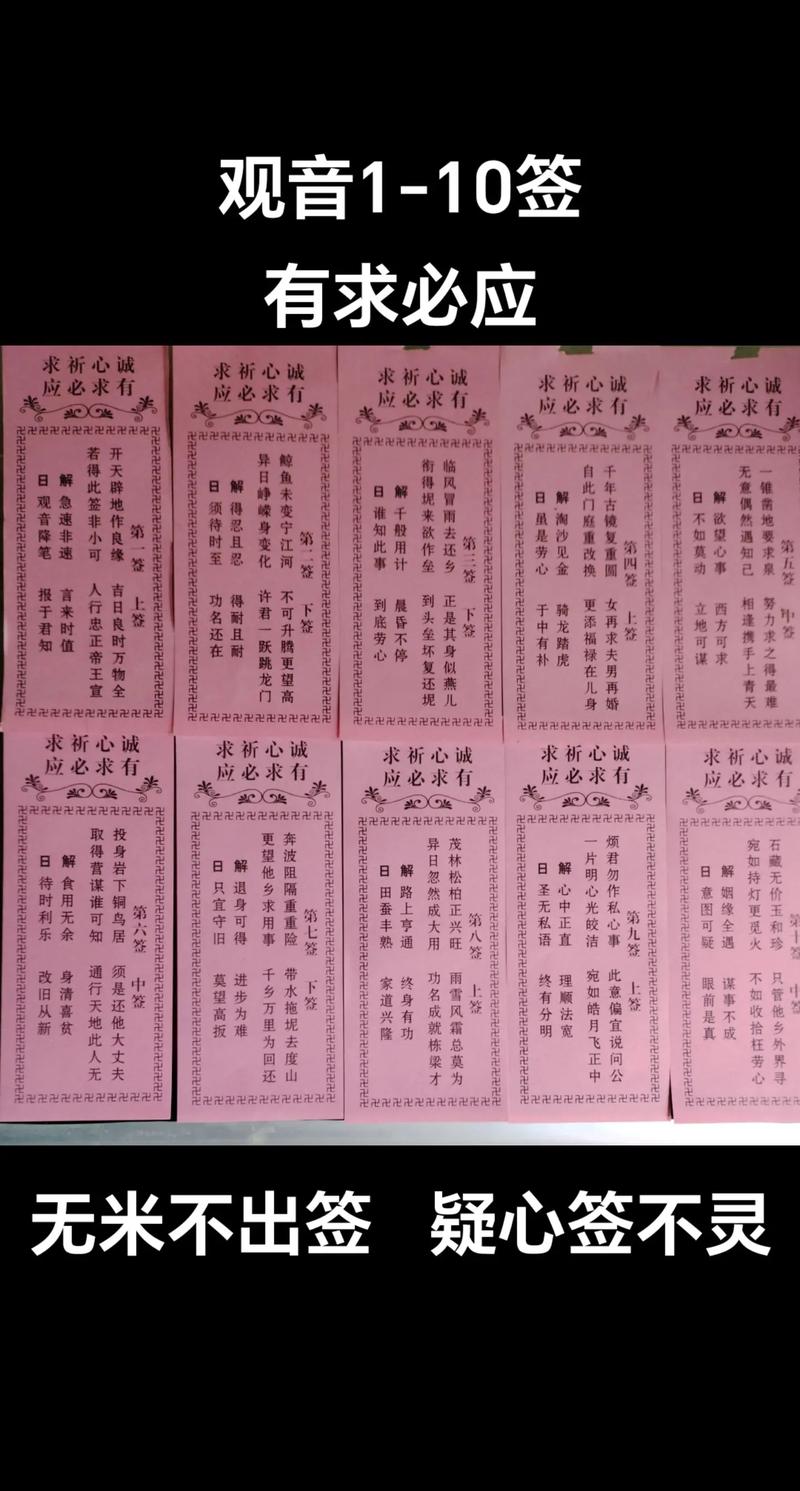 观音1-10签
有求必应
诚心祈求
有求必应
第一签 上签
开天辟地作良缘 吉日良时万物全
若得此签非小可 人行忠正帝王宣
解 急速非速 言来时值
日 观音降笔 报于君知
诚心祈求
有求必应
第二签 下签
鲸鱼未变宁江河 不可升腾更望高
异日峥嵘身变化 许君一跃跳龙门
解 得忍且忍 得耐且耐
日 须待时至 功名还在
诚心祈求
有求必应
第三签 下签
临风冒雨去还乡 正是其身似燕儿
衔得坭来欲作垒 到头垒坏复还坭
解 千般用计 晨昏不停
日 谁知此事 到底劳心
诚心祈求
有求必应
第四签 上签
千年古镜复重圆 女再求夫男再婚
自此门庭重改换 更添福禄在儿身
解 淘沙见金 骑龙踏虎
日 虽是劳心 于中有补
诚心祈求
有求必应
第五签 中签
一锥凿地要求泉 努力求之得最难
无意偶然遇知己 相逢携手上青天
解 欲望心事 西方可求
日 不如莫动 立地可谋
诚心祈求
有求必应
第六签 中签
投身岩下铜鸟居 须是还他大丈夫
取得营谋谁可知 通行天地此人无
解 食用无余 身清喜贫
日 待时利乐 改旧从新
诚心祈求
有求必应
第七签 下签
奔波阻隔重重险 带水拖坭去度山
更望他乡求用事 千乡万里为回还
解 退身可得 进步为难
日 只宜守旧 莫望高扳
诚心祈求
有求必应
第八签 上签
茂林松柏正兴旺 雨雪风霜总莫为
异日忽然成大用 功名成就栋梁才
解 路上亨通 终身有功
日 田蚕丰熟 家道兴隆
诚心祈求
有求必应
第九签 上签
烦君勿作私心事 此意偏宜说问公
一片明心光皎洁 宛如皓月飞正中
解 心中正直 理顺法宽
日 圣无私语 终有分明
诚心祈求
有求必应
第十签 中签
石藏无价玉和珍 只管他乡外界寻
宛如持灯更觅火 不如收拾枉劳心
解 姻缘全遇 谋事不成
日 意图可疑 眼前是真
无米不出签 疑心签不灵